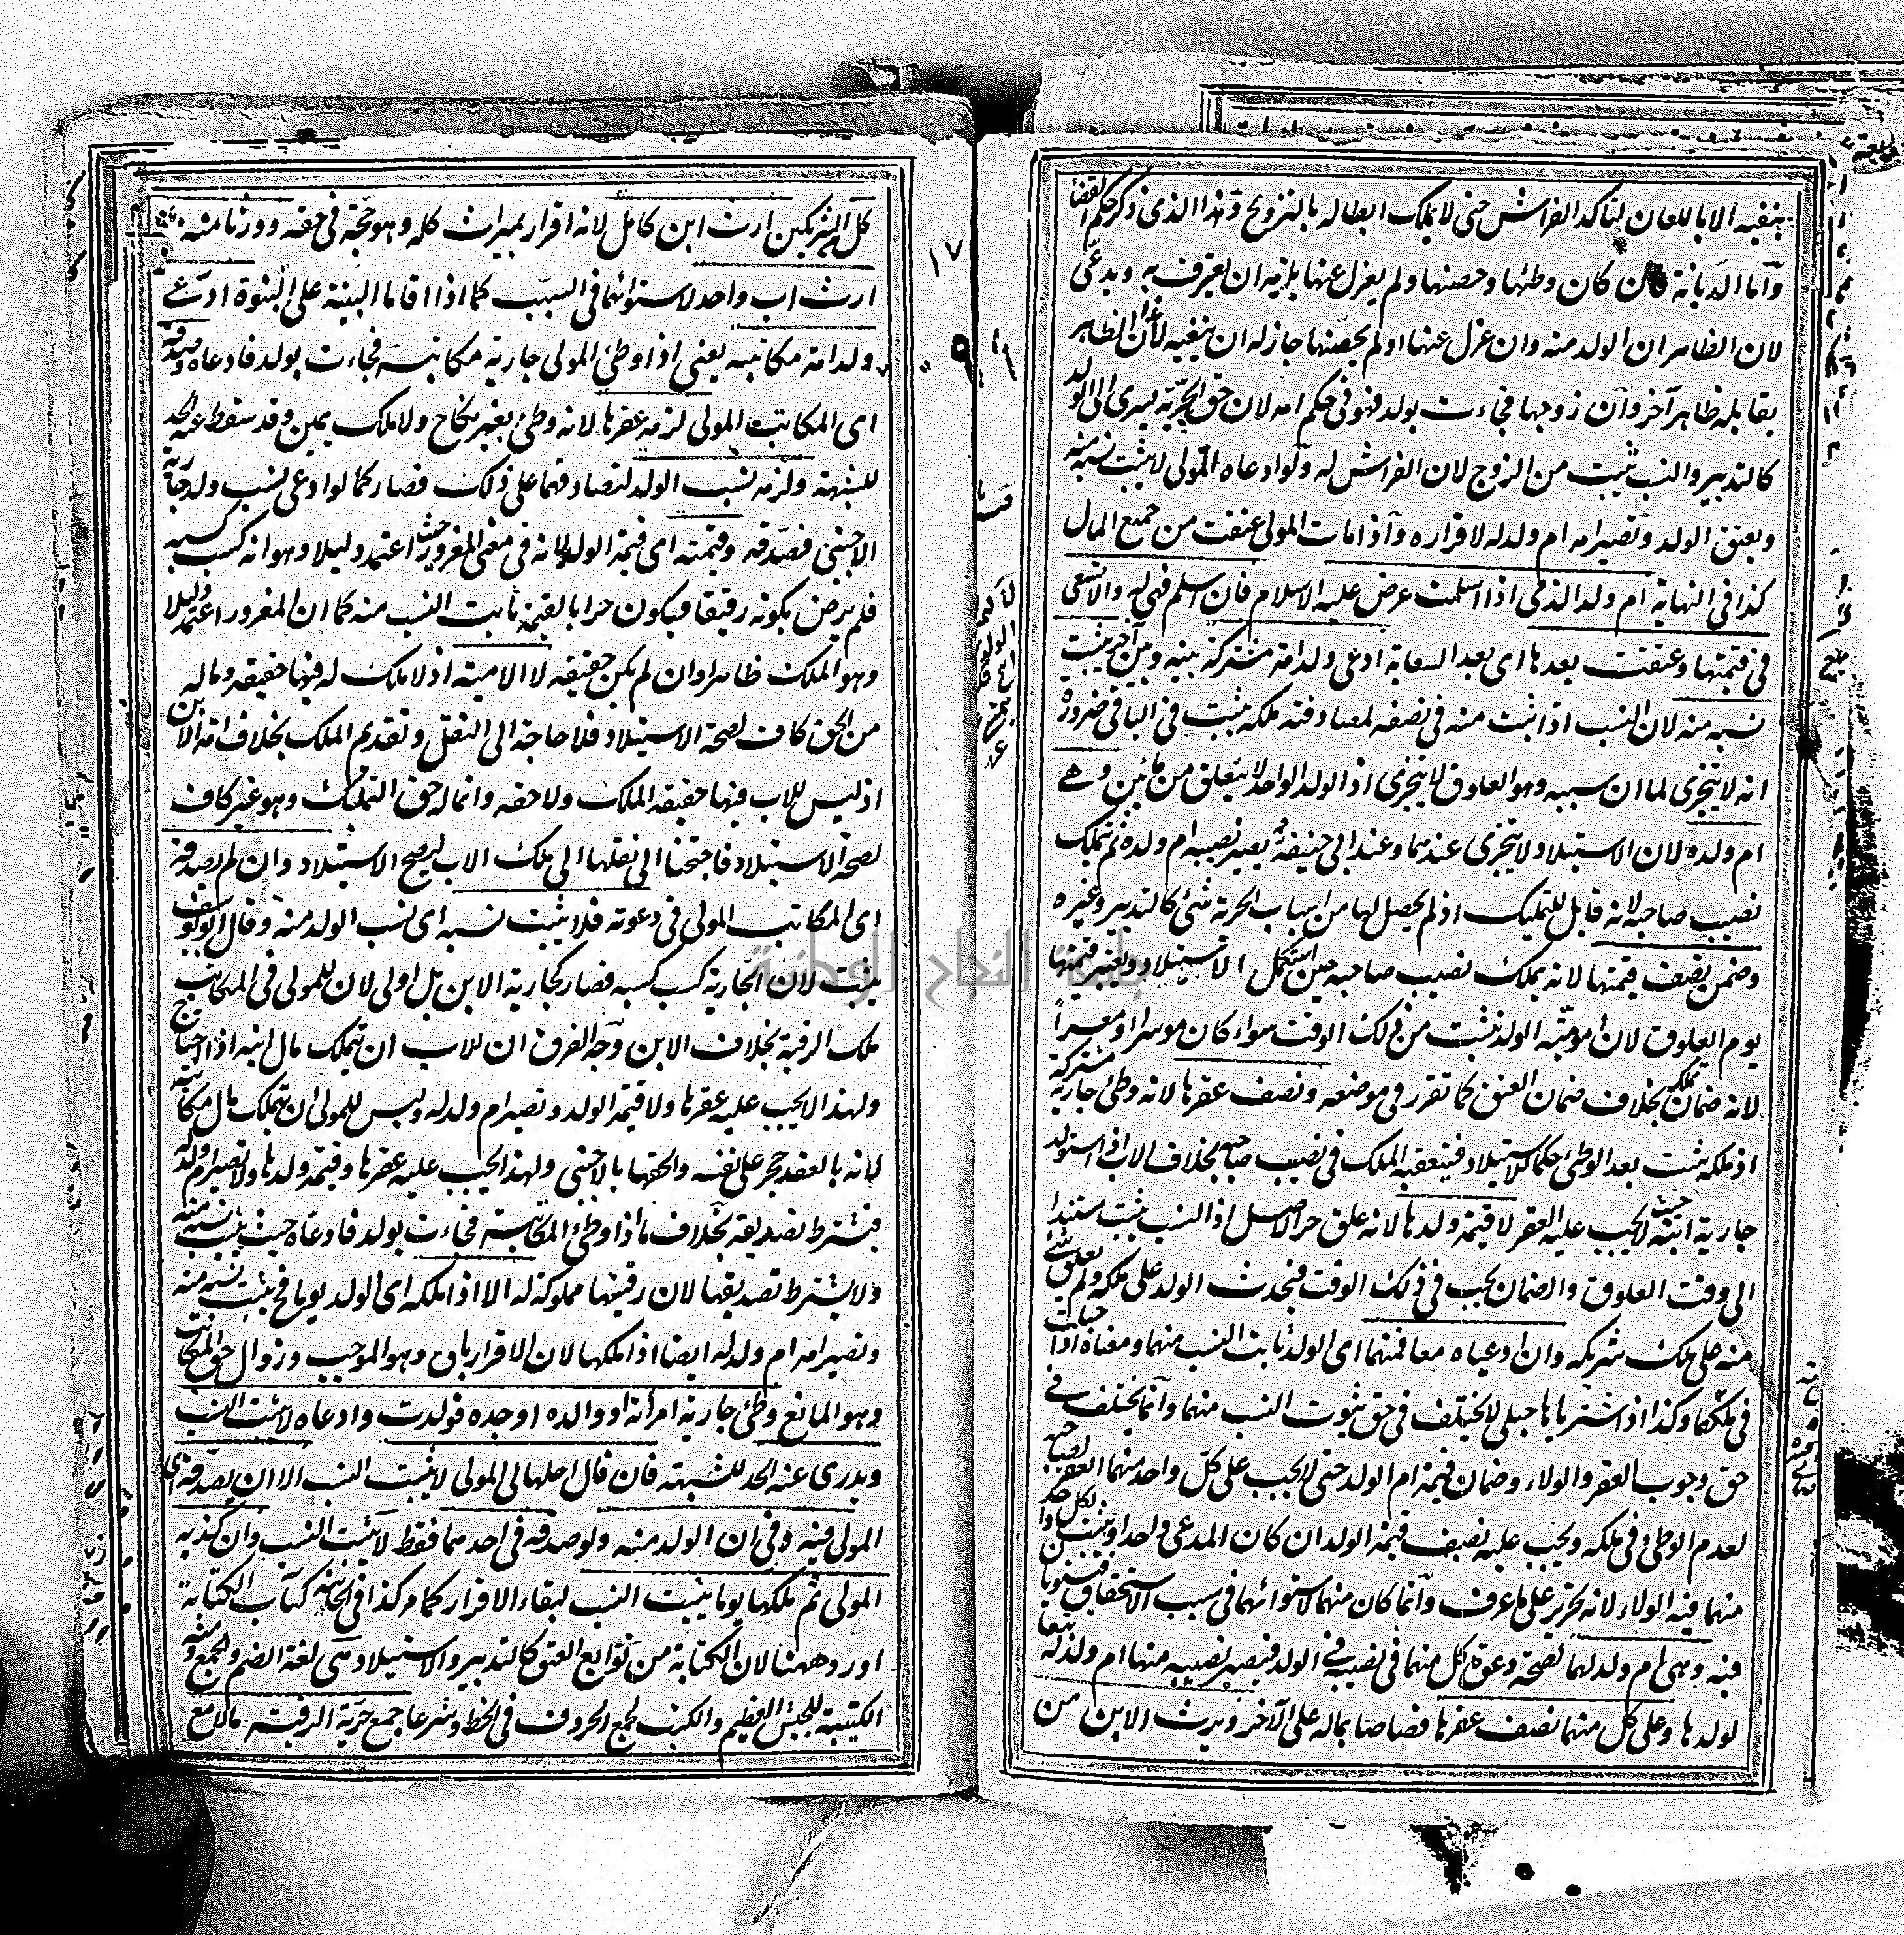 ينفيه الا باللعان لتأكد الفراش حتى لا يملك ابطاله بالتزويج وهذا الذي ذكر حكم القضاء
وأما الديانة فان كان وطئها وحصنها ولم يعزل عنها يلزمه ان يعترف به ويدعى
لان الظاهر ان الولد منه وان عزل عنها او لم يحصنها جاز له ان ينفيه لان هذا الظاهر
يقابله ظاهر آخر وان زوجها فجاءت بولد فهو في حكم امه لان حق الحرية يسرى الى الولد
كالتدبير والنسب يثبت من الزوج لان الفراش له ولو ادعاه المولى لا يثبت نسبه منه
ويعتق الولد وتصير امه ام ولد له لاقراره واذا مات المولى عتقت من جميع المال
كذا في النهاية ام ولد الذمى اذا اسلمت عرض عليه الاسلام فان اسلم فهى له والا تسعى
في قيمتها وعتقت بعدها اى بعد السعاية ادعى ولد امة مشتركة بينه وبين آخر يثبت
نسبه منه لان النسب اذا ثبت منه في نصفه لمصادفته ملكه يثبت في الباقى ضرورة
انه لا يتجزى لما ان سببه وهو العلوق لا يتجزى اذ الولد الواحد لا يتعلق من مائين وهى
ام ولده لان الاستيلاد لا يتجزى عندهما وعند ابى حنيفة يصير نصيبه ام ولده ثم يتملك
نصيب صاحبه لانه قابل للتمليك اذ لم يحصل لها من اسباب الحرية شئ كالتدبير وغيره
وضمن نصف قيمتها لانه يملك نصيب صاحبه حين استكمل الاستيلاد ويعتبر قيمتها
يوم العلوق لان امومية الولد يثبت من ذلك الوقت سواء كان موسرا او معسراً
لانه ضمان تملك بخلاف ضمان العتق كما تقرر في موضعه ونصف عقرها لانه وطئ جارية مشتركة
اذ ملكه يثبت بعد الوطئ حكما للاستيلاد فيتعقبه الملك في نصيب صاحبه بخلاف الاب اذا استولد
جارية ابنه حيث لا يجب عليه العقر لا قيمة ولدها لانه علق حر الاصل اذ النسب يثبت مستندا
الى وقت العلوق والضمان يجب في ذلك الوقت فيحدث الولد على ملكه ولم يعلق شئ
منه على ملك شريكه وان ادعياه معا فمنهما اى الولد ثابت النسب منهما ومعناه اذا حبلت
في ملكهما وكذا اذا اشترياها حبلى لا يختلف في حق ثبوت النسب منهما وانما يختلف في
حق وجوب العقر والولاء وضمان قيمة ام الولد حتى لا يجب على كل واحد منهما العقر لصاحبه
لعدم الوطئ في ملكه ويجب عليه نصف قيمة الولد ان كان المدعى واحدا ويثبت لكل واحد
منهما فيه الولاء لانه تحرير على ما عرف وانما كان منهما لاستوائهما في سبب الاستحقاق فيستويا
فيه وهى ام ولد لهما لصحة دعوة كل منهما في نصيبه في الولد فيصير نصيبه منها ام ولد له تبعا
لولدها وعلى كل منهما نصف عقرها قصاصا بماله على الآخر ويرث الابن من
كل الشريكين ارث ابن كامل لانه اقرار بميراث كله وهو حجة في حقه وورثا منه
ارث اب واحد لاستوائهما في السبب كما اذا اقاما البينة على البنوة ادعى
ولد امة مكاتبه يعنى اذا وطئ المولى جارية مكاتبه فجاءت بولد فادعاه وصدقه
اى المكاتب المولى لزمه عقرها لانه وطئ بغير نكاح ولا ملك يمين وقد سقط عنه الحد
للشبهة ولزمه نسب الولد لتصادقهما على ذلك فصار كما لو ادعى نسب ولد جارية
الاجنبى فصدقه وقيمته اى قيمة الولد لانه في معنى المغرور حيث اعتمد دليلا وهو انه كسب كسبه
فلم يرض بكونه رقيقا فيكون حرا بالقيمة ثابت النسب منه كما ان المغرور اعتمد دليلا
وهو الملك ظاهرا وان لم يكن حقيقة لا الامية اذ لا ملك له فيها حقيقة وماله
من الحق كاف لصحة الاستيلاد فلا حاجة الى النقل وتقديم الملك بخلاف امة الابن
اذ ليس للاب فيها حقيقة الملك ولا حقه وانما له حق التملك وهو غير كاف
لصحة الاستيلاد فاحتجنا الى نقلها الى ملك الاب ليصح الاستيلاد وان لم يصدقه
اى المكاتب المولى في دعوته فلا يثبت نسبه اى نسب الولد منه وقال ابو يوسف
يثبت لان الجارية كسب كسبه فصار كجارية الابن بل اولى لان للمولى في المكاتب
ملك الرقبة بخلاف الابن وجه الفرق ان للاب ان يتملك مال ابنه اذا احتاج
ولهذا لا يجب عليه عقرها ولا قيمة الولد وتصير ام ولد له وليس للمولى ان يتملك مال مكاتبه
لانه بالعقد حجر على نفسه والحقها بالاجنبى ولهذا يجب عليه عقرها وقيمة ولدها ولا تصير ام ولد له
فيشترط تصديقه بخلاف ما اذا وطئ المكاتبة فجاءت بولد فادعاه حيث يثبت نسبه منه
ولا يشترط تصديقها لان رقبتها مملوكة له الا اذا ملكه اى الولد يوما فح يثبت نسبه منه
وتصير امه ام ولد له ايضا اذا ملكها لان الاقرار باق وهو الموجب وزوال حق المكاتب
وهو المانع وطئ جارية امرأته او والده او جده فولدت وادعاه لا يثبت النسب
ويدرى عنه الحد للشبهة فان قال احلها لى المولى لا يثبت النسب الا ان يصدقه اى
المولى فيه وفى ان الولد منه ولو صدقه في احدهما فقط لا يثبت النسب وان كذبه
المولى ثم ملكها يوما يثبت النسب لبقاء الاقرار كما مر كذا في الخانية كتاب الكتابة
اورد ههنا لان الكتابة من توابع العتق كالتدبير والاستيلاد هى لغة الضم والجمع ومنه
الكتيبة للجيش العظيم والكتب لجمع الحروف في الخط وشرعا جمع حرية الرقبة مالا مع
١٧
جامعة النجاح الوطنية